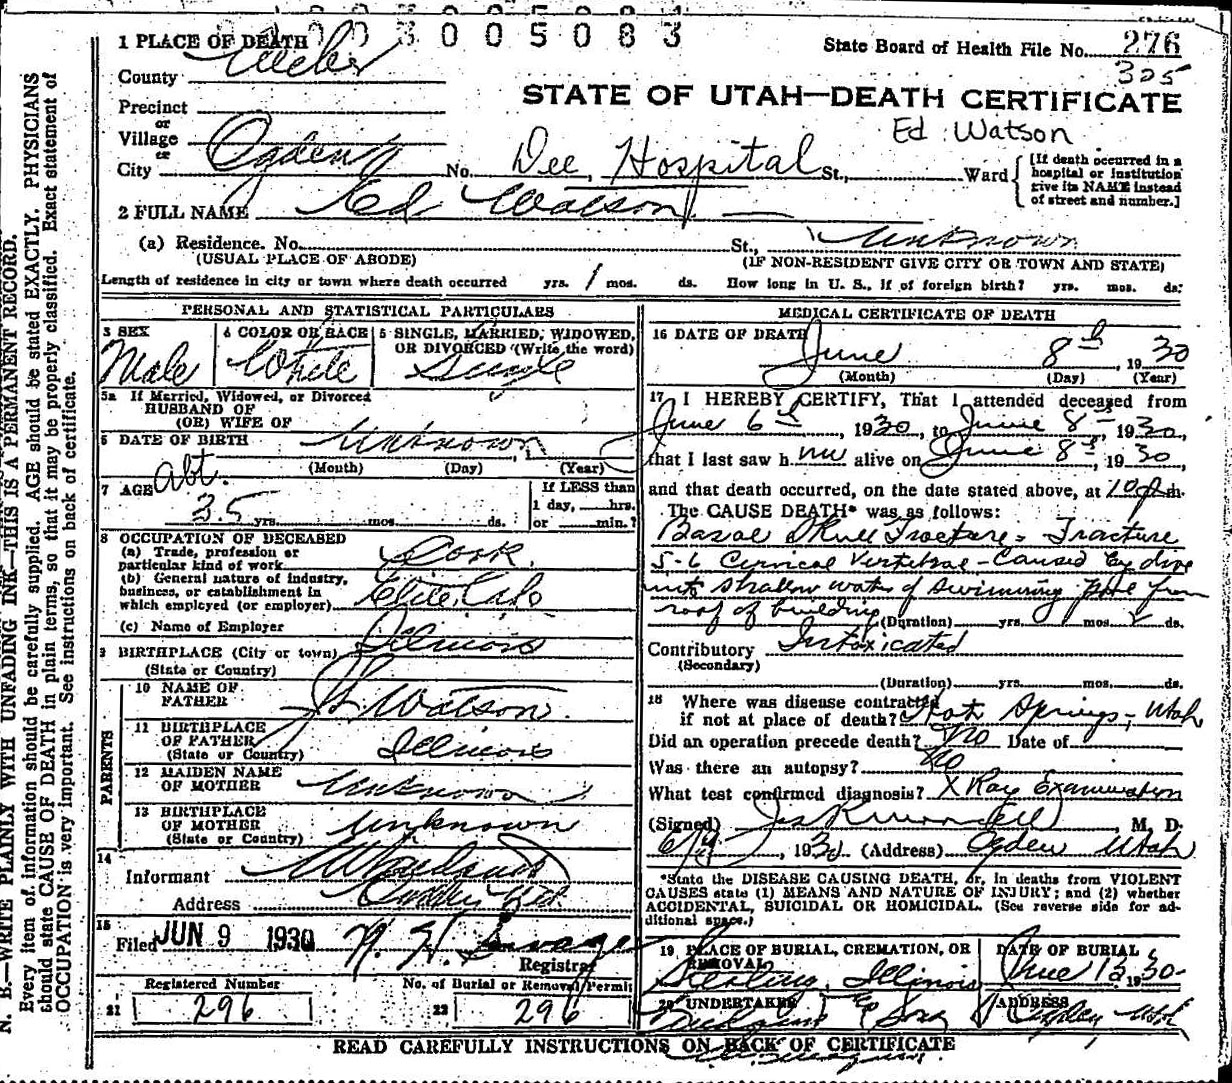 003005083
1 PLACE OF DEATH
State Board of Health File No. 276
325
County Weber
STATE OF UTAH—DEATH CERTIFICATE
Precinct
or
Village
Ed Watson
or
City Ogden No. Dee, Hospital St., Ward
[If death occurred in a
hospital or institution
give its NAME instead
of street and number.]
2 FULL NAME Ed Watson
(a) Residence. No. St., Unknown
(USUAL PLACE OF ABODE) (IF NON-RESIDENT GIVE CITY OR TOWN AND STATE)
Length of residence in city or town where death occurred yrs. 1 mos. ds. How long in U. S., if of foreign birth? yrs. mos. ds.
PERSONAL AND STATISTICAL PARTICULARS
3 SEX 4 COLOR OR RACE 5 SINGLE, MARRIED, WIDOWED,
OR DIVORCED (Write the word)
Male White Single
5a If Married, Widowed, or Divorced
HUSBAND OF
(OR) WIFE OF
6 DATE OF BIRTH Unknown
(Month) (Day) (Year)
7 AGE abt. 35 yrs. mos. ds.
If LESS than
1 day, hrs.
or min.?
8 OCCUPATION OF DECEASED
(a) Trade, profession or
particular kind of work Cook
(b) General nature of industry,
business, or establishment in
which employed (or employer) Elite Cafe
(c) Name of Employer
9 BIRTHPLACE (City or town) Illinois
(State or Country)
PARENTS
10 NAME OF
FATHER Watson
11 BIRTHPLACE
OF FATHER Illinois
(State or Country)
12 MAIDEN NAME
OF MOTHER Unknown
13 BIRTHPLACE
OF MOTHER unknown
(State or Country)
14
Informant
Address
15
Filed JUN 9 1930
Registrar
Registered Number No. of Burial or Removal Permit
21 296 22 296
MEDICAL CERTIFICATE OF DEATH
16 DATE OF DEATH
June 8th, 1930
(Month) (Day) (Year)
17 I HEREBY CERTIFY, That I attended deceased from
June 6th, 1930, to June 8th, 1930,
that I last saw him alive on June 8th, 1930,
and that death occurred, on the date stated above, at 10 p m.
The CAUSE DEATH* was as follows:
Basal Skull Fracture - Fracture
5-6 Cervical Vertebrae - Caused by dive
into shallow water of swimming pool from
roof of building
(Duration) yrs. mos. 2 ds.
Contributory Intoxicated
(Secondary)
(Duration) yrs. mos. ds.
18 Where was disease contracted
if not at place of death? Hot Springs, Utah
Did an operation precede death? No Date of
Was there an autopsy? No
What test confirmed diagnosis? X Ray Examination
(Signed) M. D.
6/9, 1930 (Address) Ogden Utah
*State the DISEASE CAUSING DEATH, or, in deaths from VIOLENT
CAUSES state (1) MEANS AND NATURE OF INJURY; and (2) whether
ACCIDENTAL, SUICIDAL OR HOMICIDAL. (See reverse side for ad-
ditional space.)
19 PLACE OF BURIAL, CREMATION, OR
REMOVAL
Sterling, Illinois
DATE OF BURIAL
June 12 1930
20 UNDERTAKER & Sons
ADDRESS
Ogden, Utah
READ CAREFULLY INSTRUCTIONS ON BACK OF CERTIFICATE
N. B.—WRITE PLAINLY WITH UNFADING INK—THIS IS A PERMANENT RECORD.
Every item of information should be carefully supplied. AGE should be stated EXACTLY. PHYSICIANS
should state CAUSE OF DEATH in plain terms, so that it may be properly classified. Exact statement of
OCCUPATION is very important. See instructions on back of certificate.